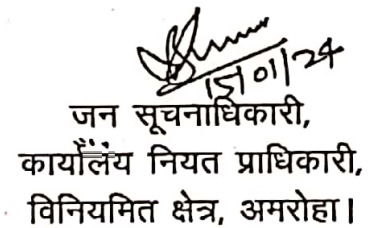 15/01/24
जन सूचनाधिकारी,
कार्यालय नियत प्राधिकारी,
विनियमित क्षेत्र, अमरोहा।